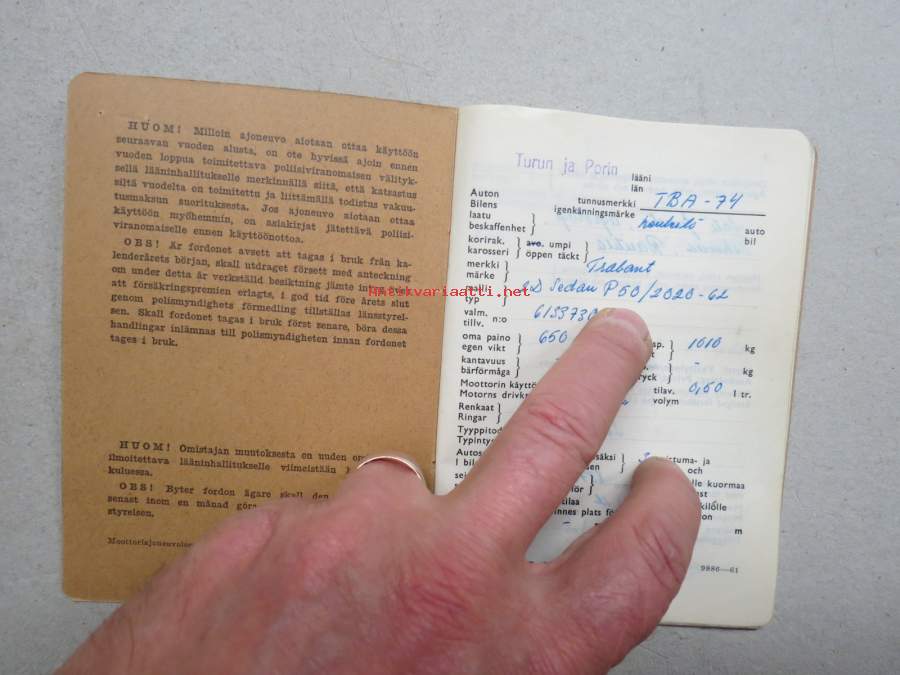 HUOM! Milloin ajoneuvo aiotaan ottaa käyttöön
seuraavan vuoden alusta, on ote hyvissä ajoin ennen
vuoden loppua toimitettava poliisiviranomaisen välityk-
sellä lääninhallitukselle merkinnällä siitä, että katsastus
siltä vuodelta on toimitettu ja liittämällä todistus vakuu-
tusmaksun suorituksesta. Jos ajoneuvo aiotaan ottaa
käyttöön myöhemmin, on asiakirjat jätettävä poliisi-
viranomaiselle ennen käyttöönottoa.
OBS! Är fordonet avsett att tagas i bruk från ka-
lenderårets början, skall utdraget försett med anteckning
om under detta år verkställd besiktning jämte intyg
att försäkringspremien erlagts, i god tid före årets slut
genom polismyndighets förmedling tillställas länsstyrel-
sen. Skall fordonet tagas i bruk först senare, böra dessa
handlingar inlämnas till polismyndigheten innan fordonet
tages i bruk.
HUOM! Omistajan muutoksesta en uuden
ilmoitettava lääninhallitukselle viimeistään
kuluessa.
OBS! Byter fordon ägare skall den
senast inom en månad
styrelsen.
Turun ja Porin
lääni
län
Auton
Bilens
tunnusmerkki
igenkänningsmärke
TBA-74
laatu
beskaffenhet
auto
bil
korirak.
karosseri
avo. umpi
öppen täckt
merkki
märke
Trabant
malli
typ
2D Sedan P50/2020-62
Antikvariaatti.net
valm.
tillv.
n:o
6153730
oma paino
egen vikt
650
1010 kg
kantavuus
bärförmåga
-
kg
Moottorin käyttö
Motorns drivkr
tilav.
volym
0,50 l tr.
Renkaat
Ringar
Tyyppitod
Typintyg
Autos
I bil
istuma- ja
och
lle kuormaa
tilaa
kilölle
m
9886—61